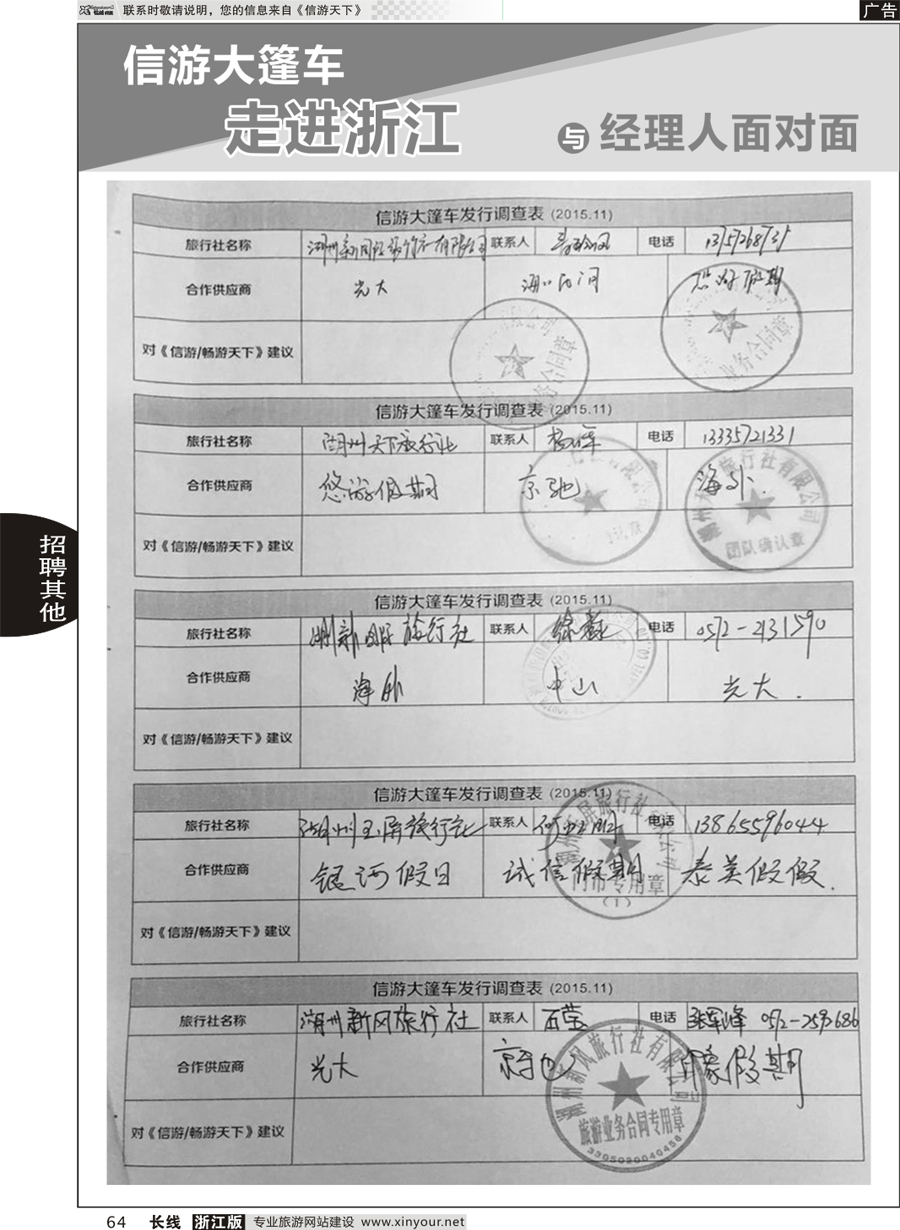 联系时敬请说明，您的信息来自《信游天下》
广告
信游大篷车
走进浙江
与 经理人面对面
招聘其他
信游大篷车发行调查表 (2015.11)
旅行社名称 联系人 电话
合作供应商 光大 海口民间 悠游假期
对《信游/畅游天下》建议
业务合同章
信游大篷车发行调查表 (2015.11)
旅行社名称 湖州天下旅行社 联系人 电话 13335721331
合作供应商 悠游假期 京驰 海外.
对《信游/畅游天下》建议
团队确认章
信游大篷车发行调查表 (2015.11)
旅行社名称 旅行社 联系人 电话 0572-2131590
合作供应商 海外 中山 光大.
对《信游/畅游天下》建议
信游大篷车发行调查表 (2015.11)
旅行社名称 湖州玉屏旅行社 联系人 电话 13865596044
合作供应商 银河假日 诚信假期 泰美假假.
对《信游/畅游天下》建议
门市专用章
(1)
信游大篷车发行调查表 (2015.11)
旅行社名称 湖州新风旅行社 联系人 石莹 电话 0572-2593686
合作供应商 光大 京驰 假期
对《信游/畅游天下》建议
湖州新风旅行社有限公司
旅游业务合同专用章
3305020040456
64 长线 浙江版 专业旅游网站建设 www.xinyour.net